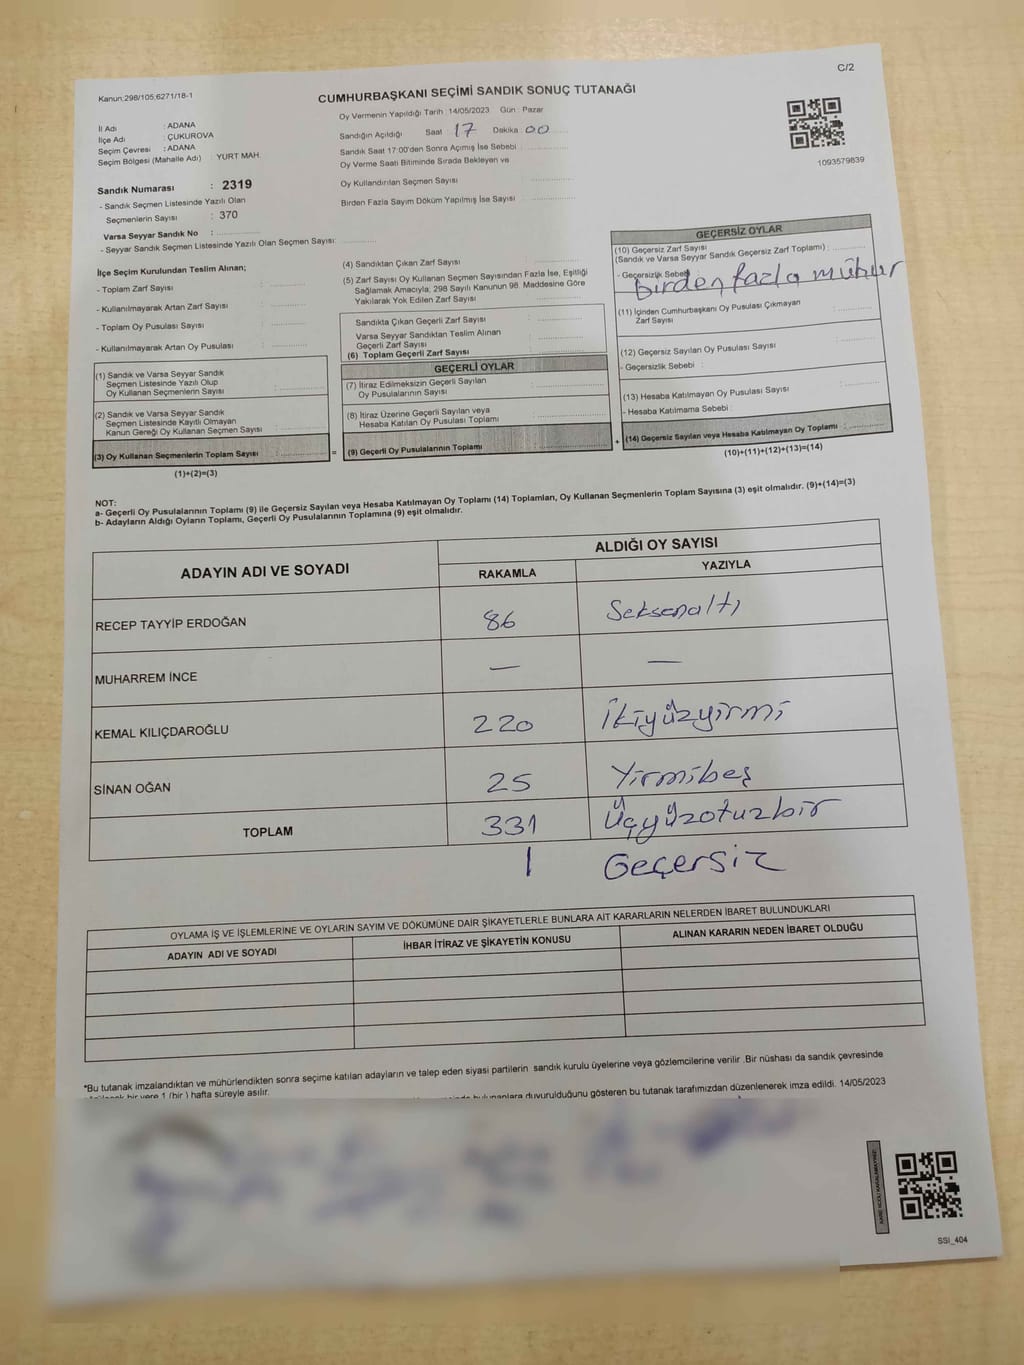 C/2
Kanun:298/105;6271/18-1
CUMHURBAŞKANI SEÇİMİ SANDIK SONUÇ TUTANAĞI
İl Adı : ADANA
İlçe Adı : ÇUKUROVA
Seçim Çevresi : ADANA
Seçim Bölgesi (Mahalle Adı) : YURT MAH.
Oy Vermenin Yapıldığı Tarih : 14/05/2023 Gün : Pazar
Sandığın Açıldığı Saat : 17 Dakika 00
Sandık Saat 17:00'den Sonra Açılmış İse Sebebi :
Oy Verme Saati Bitiminde Sırada Bekleyen ve
Oy Kullandırılan Seçmen Sayısı :
Birden Fazla Sayım Döküm Yapılmış İse Sayısı :
1093579839
Sandık Numarası : 2319
- Sandık Seçmen Listesinde Yazılı Olan
Seçmenlerin Sayısı : 370
Varsa Seyyar Sandık No :
- Seyyar Sandık Seçmen Listesinde Yazılı Olan Seçmen Sayısı:
İlçe Seçim Kurulundan Teslim Alınan;
- Toplam Zarf Sayısı :
- Kullanılmayarak Artan Zarf Sayısı :
- Toplam Oy Pusulası Sayısı :
- Kullanılmayarak Artan Oy Pusulası :
(1) Sandık ve Varsa Seyyar Sandık
Seçmen Listesinde Yazılı Olup
Oy Kullanan Seçmenlerin Sayısı :
(2) Sandık ve Varsa Seyyar Sandık
Seçmen Listesinde Kayıtlı Olmayan
Kanun Gereği Oy Kullanan Seçmen Sayısı :
(3) Oy Kullanan Seçmenlerin Toplam Sayısı :
(1)+(2)=(3)
(4) Sandıktan Çıkan Zarf Sayısı :
(5) Zarf Sayısı Oy Kullanan Seçmen Sayısından Fazla İse, Eşitliği
Sağlamak Amacıyla; 298 Sayılı Kanunun 98. Maddesine Göre
Yakılarak Yok Edilen Zarf Sayısı :
Sandıkta Çıkan Geçerli Zarf Sayısı :
Varsa Seyyar Sandıktan Teslim Alınan
Geçerli Zarf Sayısı :
(6) Toplam Geçerli Zarf Sayısı :
GEÇERLİ OYLAR
(7) İtiraz Edilmeksizin Geçerli Sayılan
Oy Pusulalarının Sayısı :
(8) İtiraz Üzerine Geçerli Sayılan veya
Hesaba Katılan Oy Pusulası Toplamı :
= (9) Geçerli Oy Pusulalarının Toplamı :
GEÇERSİZ OYLAR
(10) Geçersiz Zarf Sayısı
(Sandık ve Varsa Seyyar Sandık Geçersiz Zarf Toplamı) :
- Geçersizlik Sebebi
Birden fazla mühür
(11) İçinden Cumhurbaşkanı Oy Pusulası Çıkmayan
Zarf Sayısı :
(12) Geçersiz Sayılan Oy Pusulası Sayısı :
- Geçersizlik Sebebi :
(13) Hesaba Katılmayan Oy Pusulası Sayısı :
- Hesaba Katılmama Sebebi :
+ (14) Geçersiz Sayılan veya Hesaba Katılmayan Oy Toplamı :
(10)+(11)+(12)+(13)=(14)
NOT:
a- Geçerli Oy Pusulalarının Toplamı (9) ile Geçersiz Sayılan veya Hesaba Katılmayan Oy Toplamı (14) Toplamları, Oy Kullanan Seçmenlerin Toplam Sayısına (3) eşit olmalıdır. (9)+(14)=(3)
b- Adayların Aldığı Oyların Toplamı, Geçerli Oy Pusulalarının Toplamına (9) eşit olmalıdır.
ADAYIN ADI VE SOYADI ALDIĞI OY SAYISI
RAKAMLA YAZIYLA
RECEP TAYYİP ERDOĞAN 86 Seksenaltı
MUHARREM İNCE — —
KEMAL KILIÇDAROĞLU 220 İkiyüzyirmi
SİNAN OĞAN 25 Yirmibeş
TOPLAM 331 Üçyüzotuzbir
1 Geçersiz
OYLAMA İŞ VE İŞLEMLERİNE VE OYLARIN SAYIM VE DÖKÜMÜNE DAİR ŞİKAYETLERLE BUNLARA AİT KARARLARIN NELERDEN İBARET BULUNDUKLARI
ADAYIN ADI VE SOYADI İHBAR İTİRAZ VE ŞİKAYETİN KONUSU ALINAN KARARIN NEDEN İBARET OLDUĞU
*Bu tutanak imzalandıktan ve mühürlendikten sonra seçime katılan adayların ve talep eden siyasi partilerin sandık kurulu üyelerine veya gözlemcilerine verilir .Bir nüshası da sandık çevresinde
bir yere 1 (bir ) hafta süreyle asılır.
bulunanlara duyurulduğunu gösteren bu tutanak tarafımızdan düzenlenerek imza edildi. 14/05/2023
SSI_404